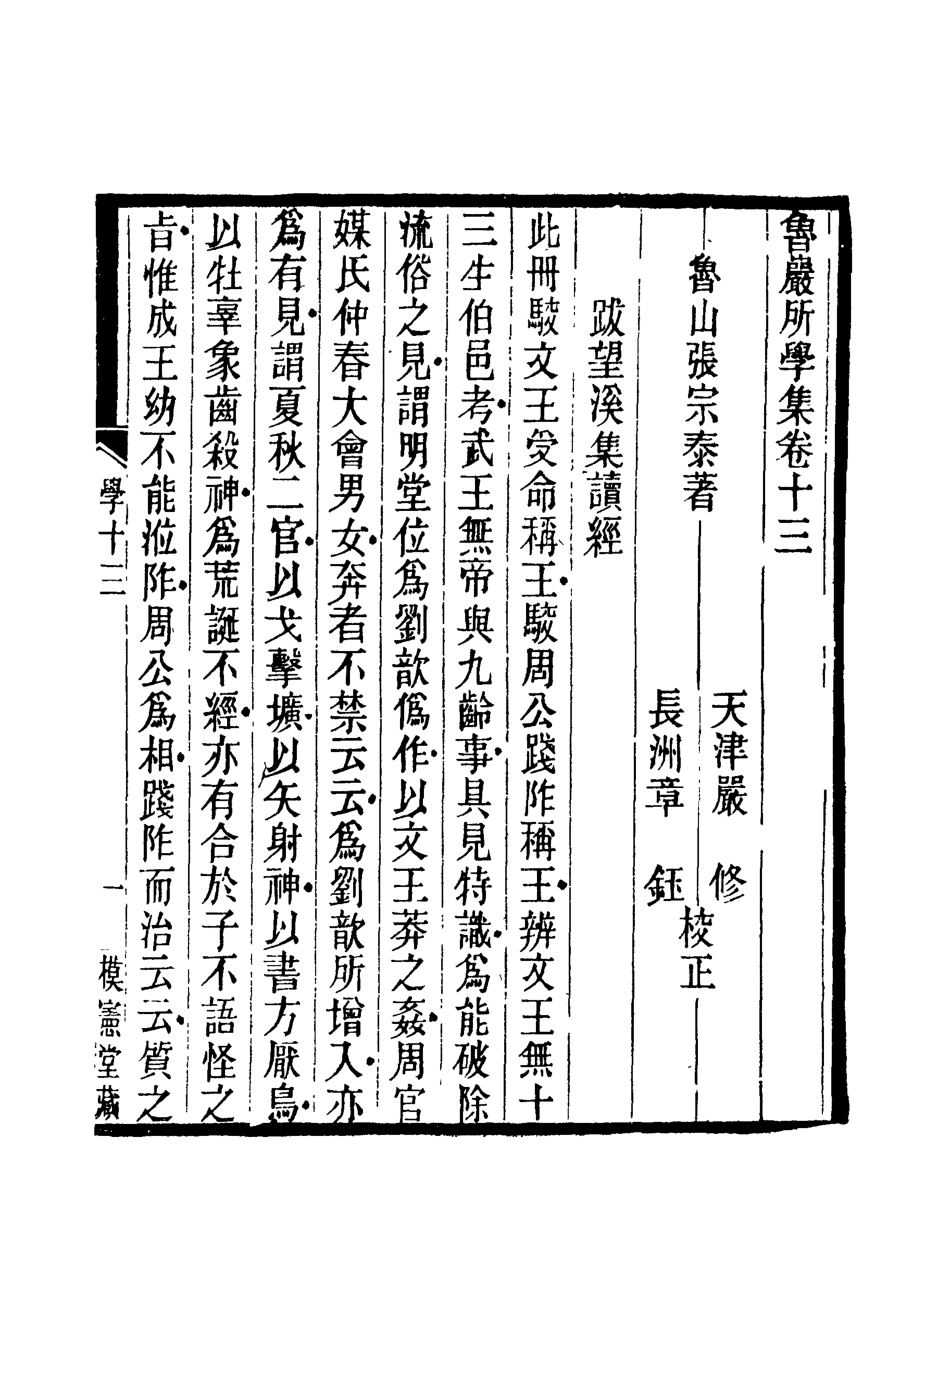 魯巖所學集卷十三
魯山張宗泰著
天津嚴 修
長洲章 鈺
校正
跋望溪集讀經
此冊駮文王受命稱王駮周公踐阼稱王辨文王無十
三生伯邑考武王無帝與九齡事具見特識爲能破除
流俗之見謂明堂位爲劉歆僞作以文王莽之姦周官
媒氏仲春大會男女奔者不禁云云爲劉歆所增入亦
爲有見謂夏秋二官以戈擊壙以矢射神以書方厭鳥
以牡橭象齒殺神爲荒誕不經亦有合於子不語怪之
㫖惟成王幼不能涖阼周公爲相踐阼而治云云質之
學十三
一
模憲堂藏